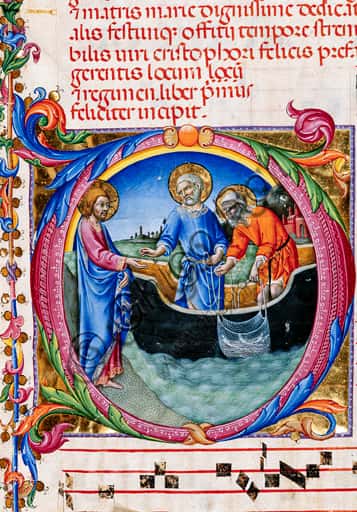 ⁊ matris marie dignissime dedicat
alis festiuiq; offitij tempore stren
bilis uiri cristophori felicis pref
gerentis locum locũ
⁊ regimen. liber pͥmus
feliciter incipit.